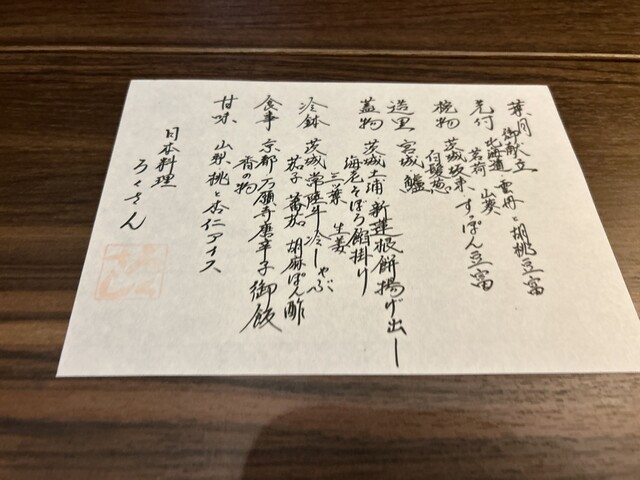 葉月 御献立
先付 北海道 雲丹と胡桃豆富
茗荷 山葵
椀物 茨城坂東 すっぽん豆富
白髪葱
造里 宮城 鱸
蓋物 茨城土浦 新蓮根餅揚げ出し
海老そぼろ餡掛け
三つ葉 生姜
冷鉢 茨城 常陸牛冷しゃぶ
茄子 蕃茄 胡麻ぽん酢
食事 京都 万願寺唐辛子御飯
香の物
甘味 山梨 桃と杏仁アイス
日本料理
ろくさん